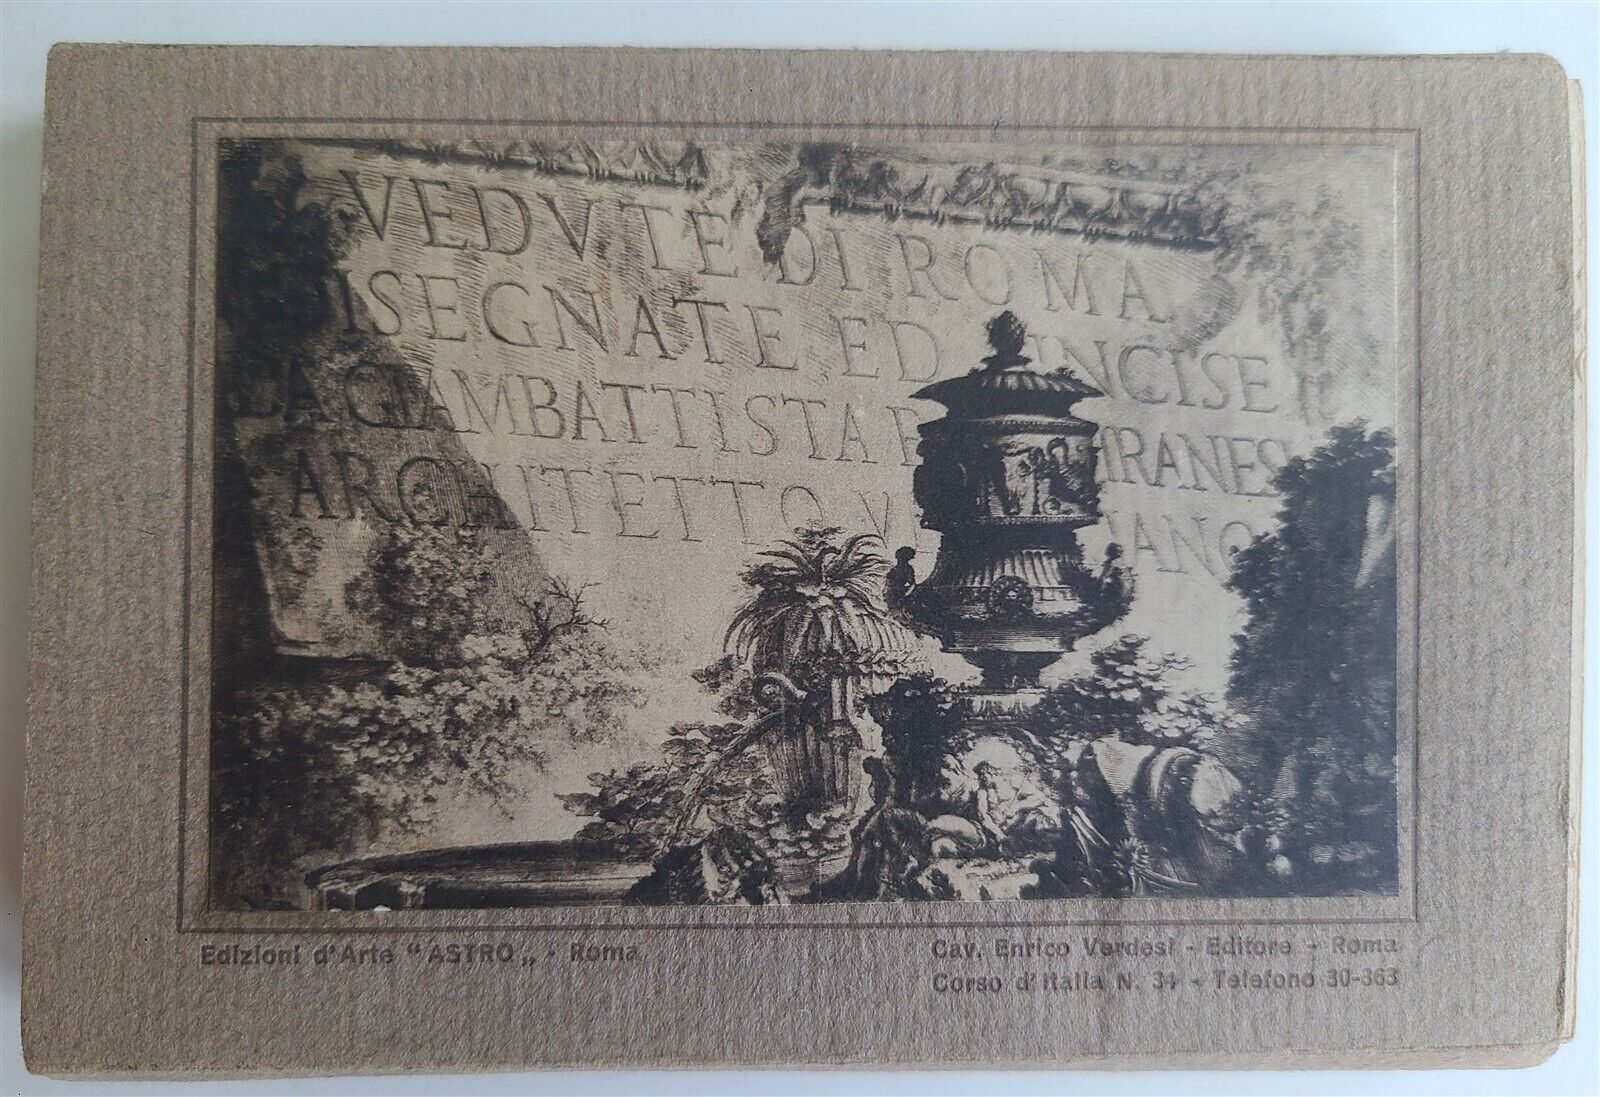 VEDVTE DI ROMA
ISEGNATE ED INCISE
DA GIAMBATTISTA P RANESI
ARCHITETTO V IANO
Edizioni d'Arte “ASTRO„ - Roma
Cav. Enrico Verdesi - Editore - Roma
Corso d'Italia N. 34 - Telefono 30-363